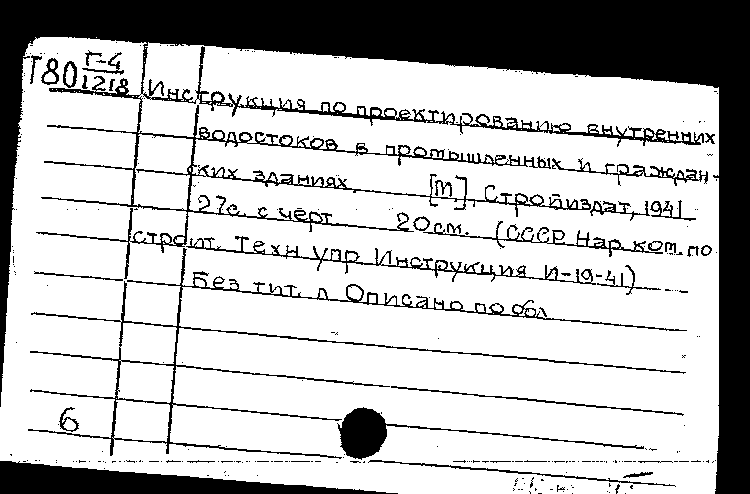 Т80 Г-4
1218
Инструкция по проектированию внутренних
водостоков в промышленных и граждан-
ских зданиях. [М.], Стройиздат, 1941
27с. с черт 20см. (СССР Нар. ком. по
строит. Техн упр Инструкция И-19-41)
Без тит. л Описано по обл
6